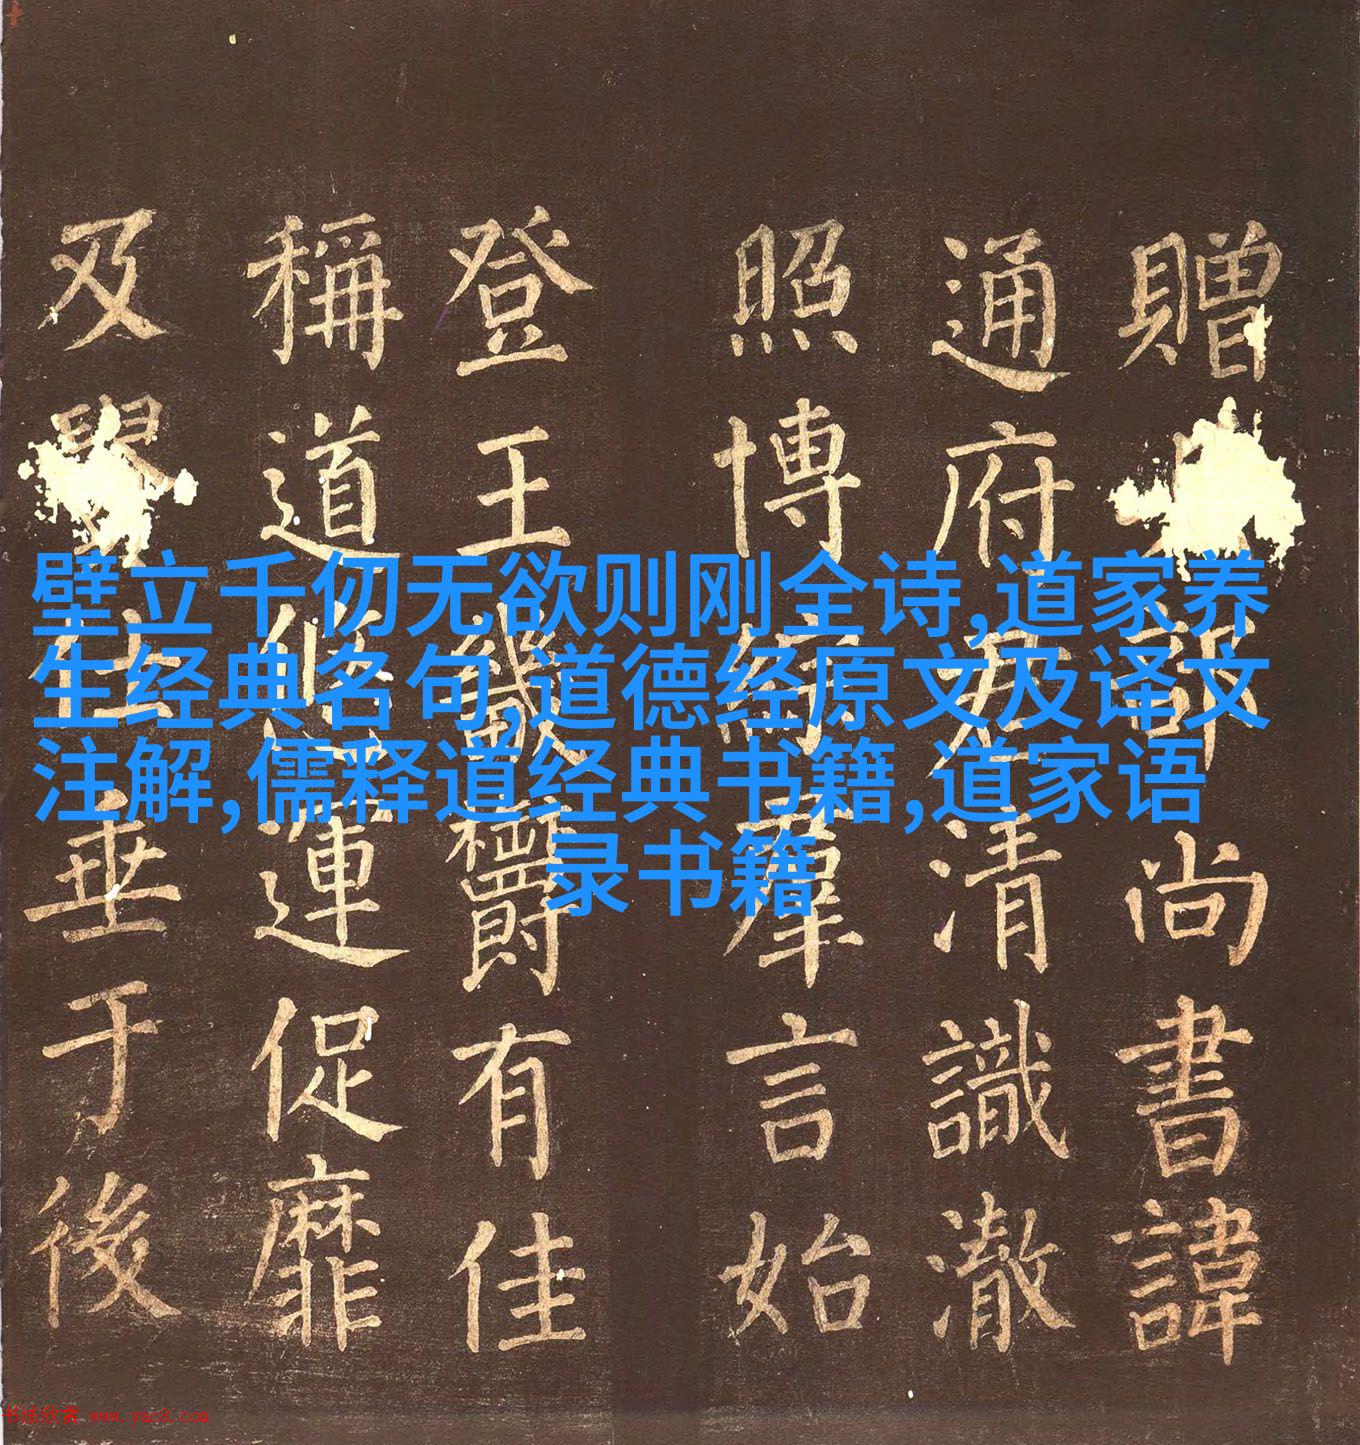 贈部尚書諱
通府君清識澈
照博綜羣言始
登王畿欝有佳
稱道悠運促靡
及垂于後
壁立千仞无欲则刚全诗,道家养
生经典名句,道德经原文及译文
注解,儒释道经典书籍,道家语
录书籍
书法欣赏 www.yac8.com